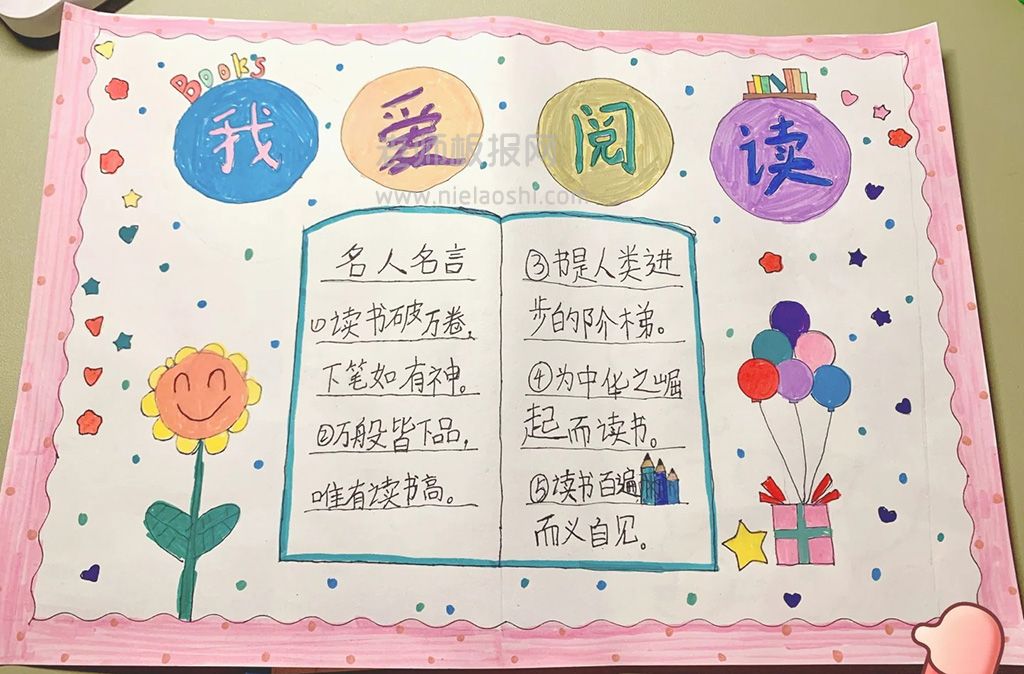 Books
我爱阅读
老师板报网
www.nielaoshi.com
名人名言
①读书破万卷,
下笔如有神。
②万般皆下品,
唯有读书高。
③书是人类进
步的阶梯。
④为中华之崛
起而读书。
⑤读书百遍
而义自见。